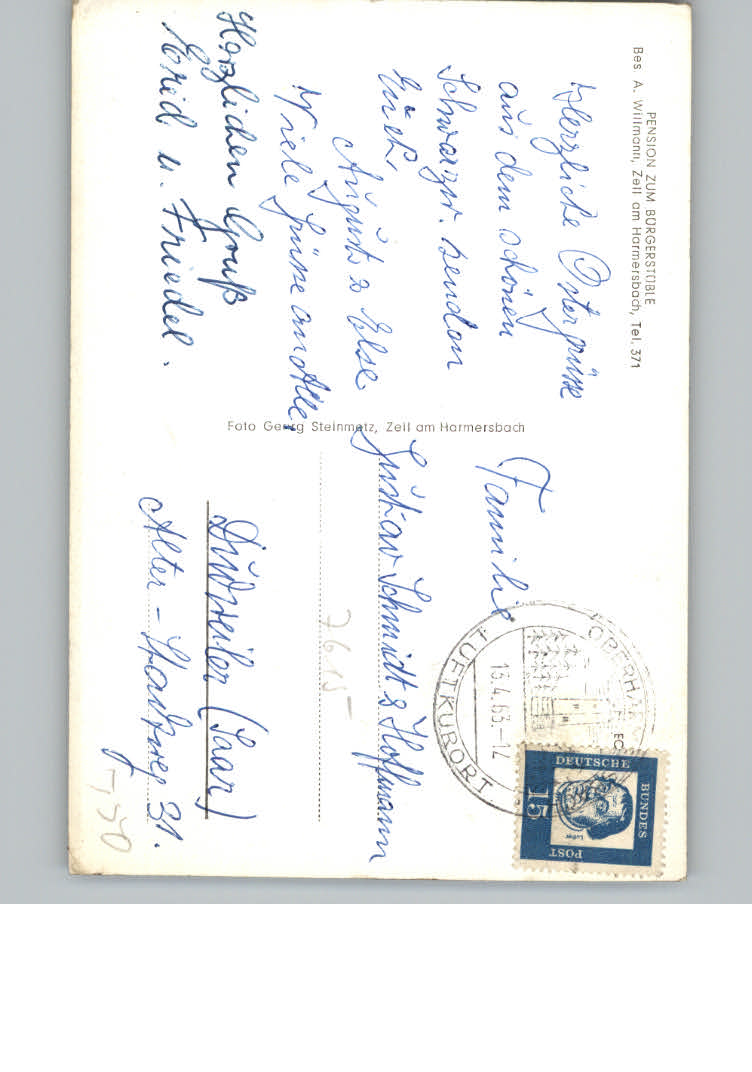 PENSION ZUM BÜRGERSTÜBLE
Bes. A. Willmann, Zell am Harmersbach, Tel. 371
Herzliche Ostergrüsse
aus dem schönen
Schwarzw. senden
Euch,
August & Else
Viele Grüsse an Alle,
Herzlichen Gruß
u. Friedel.
Foto Georg Steinmetz, Zell am Harmersbach
Familie
Gustav Schmidt & Hoffmann
7615-
Dudweiler (Saar)
Alter-Stadtweg 31.
-,50
OBERHA
LUFTKURORT
13.4.63-12
DEUTSCHE
BUNDES
POST
15
Luther